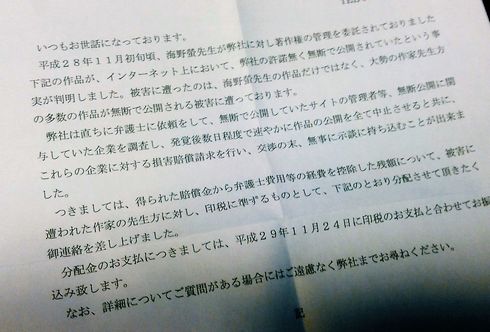 いつもお世話になっております。
平成28年11月初旬頃、海野螢先生が弊社に対し著作権の管理を委託されておりました
下記の作品が、インターネット上において、弊社の許諾無く無断で公開されていたという事
実が判明しました。被害に遭ったのは、海野螢先生の作品だけではなく、大勢の作家先生方
の多数の作品が無断で公開される被害に遭っております。
弊社は直ちに弁護士に依頼をして、無断で公開していたサイトの管理者等、無断公開に関
与していた企業を調査し、発覚後数日程度で速やかに作品の公開を全て中止させると共に、
これらの企業に対する損害賠償請求を行い、交渉の末、無事に示談に持ち込むことが出来ま
した。
つきましては、得られた賠償金から弁護士費用等の経費を控除した残額について、被害に
遭われた作家の先生方に対し、印税に準ずるものとして、下記のとおり分配させて頂きたく
御連絡を差し上げました。
分配金のお支払につきましては、平成29年11月24日に印税のお支払と合わせてお振
込み致します。
なお、詳細についてご質問がある場合にはご遠慮なく弊社までお尋ねください。
記